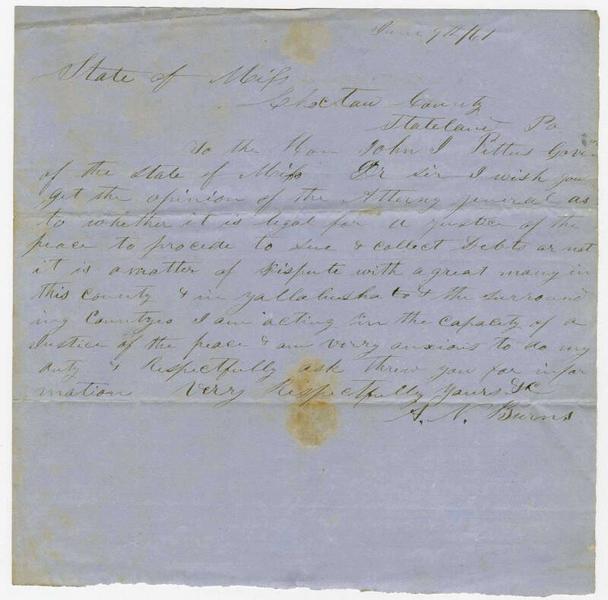 June 9th/61
State of Miss
Choctaw County
Stateland Po
To the Hon John J Pettus Gov
of the State of Miss Dr sir I wish you
get the opinion of the Atterny general as
to whether it is legal for a Justice of the
peace to procede to Sue & collect Debts or not
it is a matter of Dispute with a great many in
this county & in yallabusha & the surround
ing Countyes I am acting in the capacity of a
Justice of the peace & am verry anxious to do my
duty & Respectfully ask threw you for infor
mation Verry Respectfully yours &c
A. N. Burns